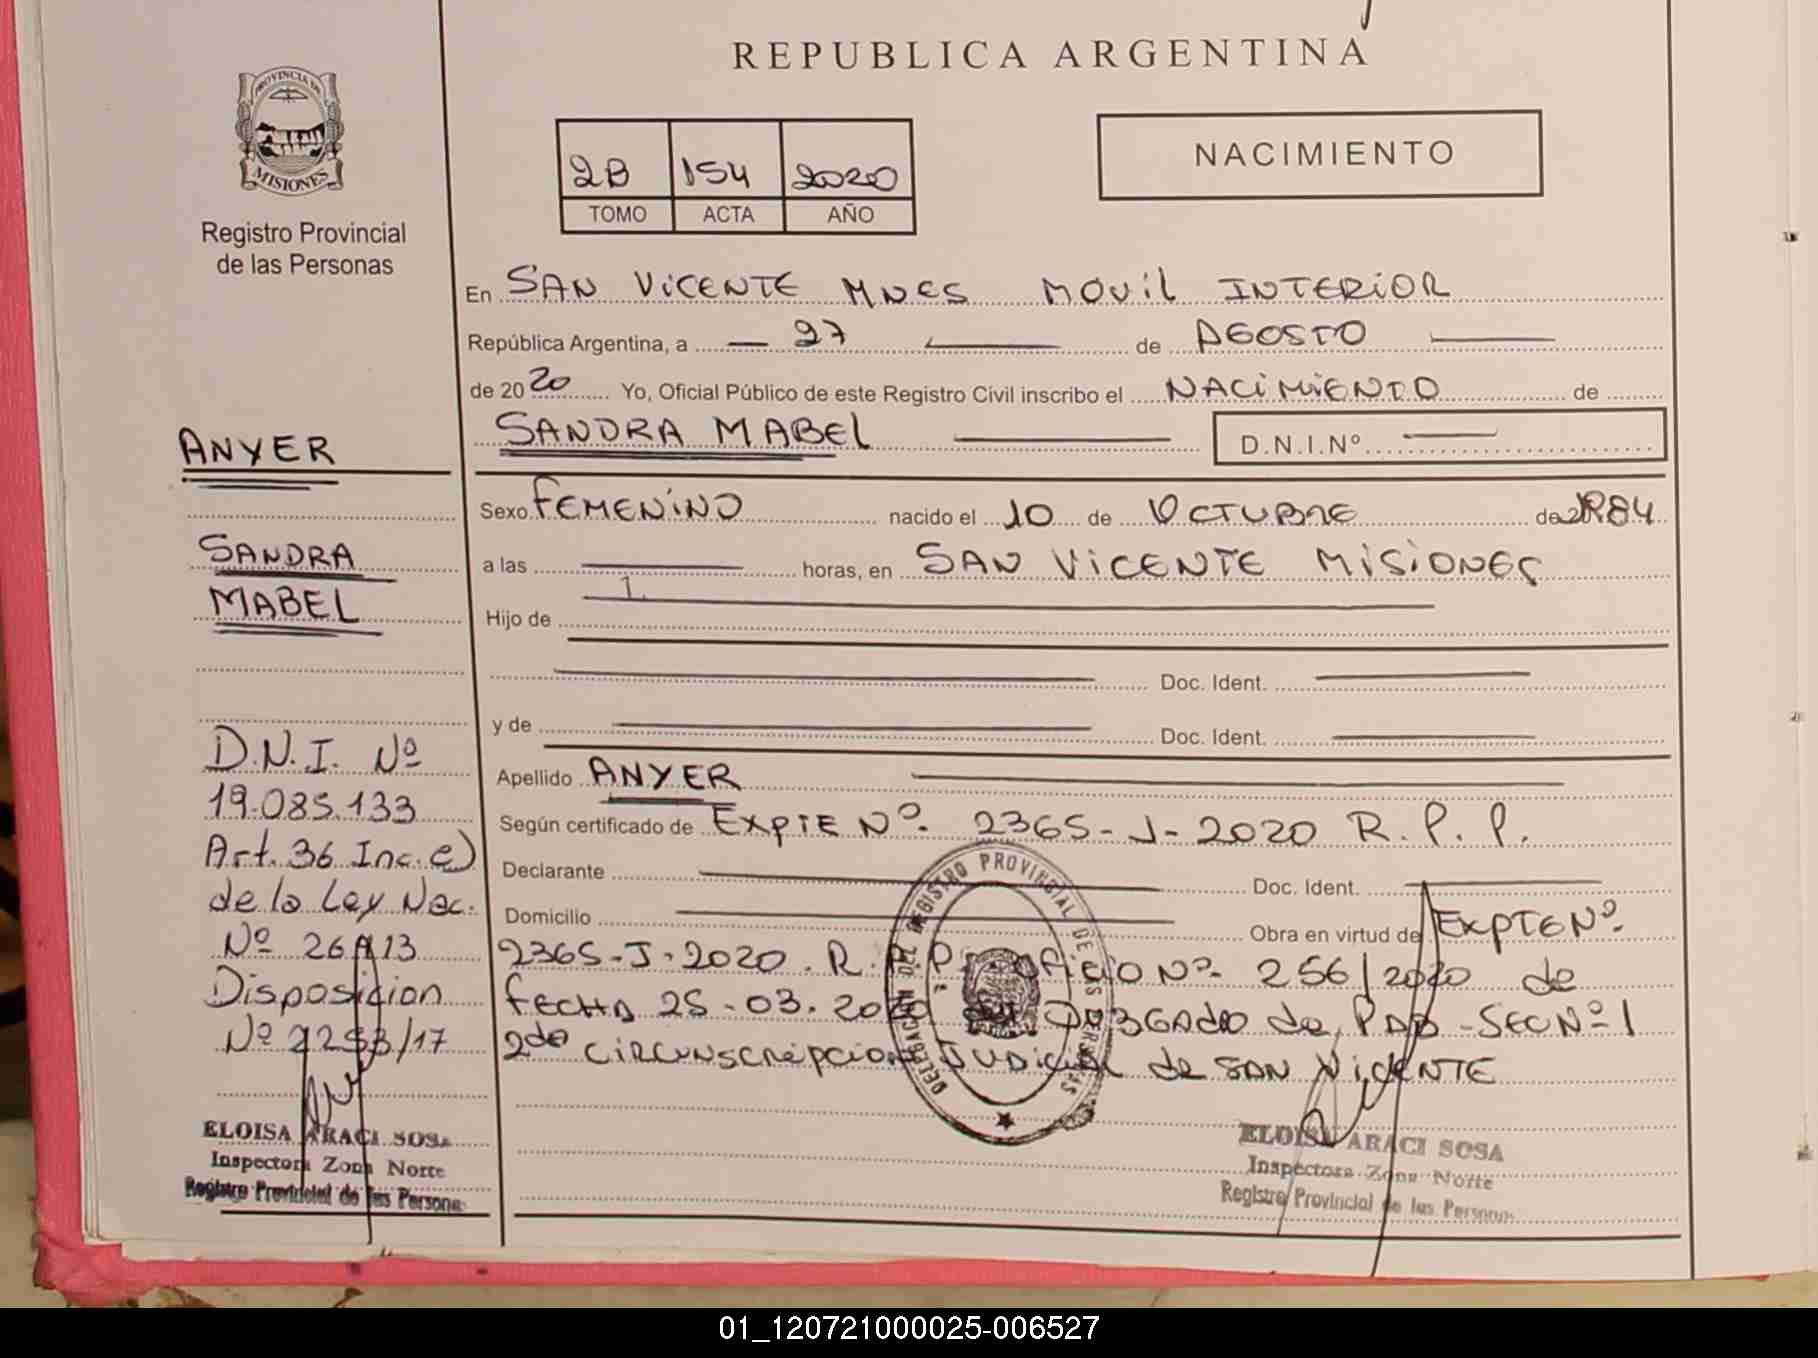 REPUBLICA ARGENTINA
PROVINCIA DE
MISIONES
Registro Provincial
de las Personas
2B 154 2020
TOMO ACTA AÑO
NACIMIENTO
En SAN VICENTE MNES MOVIL INTERIOR
República Argentina, a 27 de AGOSTO
de 2020 Yo, Oficial Público de este Registro Civil inscribo el NACIMIENTO de
SANDRA MABEL D.N.I.Nº
Sexo FEMENINO nacido el 10 de OCTUBRE de 1984
a las horas, en SAN VICENTE MISIONES
Hijo de
Doc. Ident.
y de Doc. Ident.
Apellido ANYER
Según certificado de EXPTE Nº 2365-J-2020 R.P.P.
Declarante Doc. Ident.
Domicilio Obra en virtud de EXPTE Nº
2365-J-2020. R.P.P. OFICIO Nº 256/2020 de
FECHA 25-03.2020 JUZGADO de PAZ - SEC Nº 1
2da CIRCUNSCRIPCION JUDICIAL de SAN VICENTE
DELEGACION DEL REGISTRO PROVINCIAL DE LAS PERSONAS
ELOISA ARACI SOSA
Inspectora Zona Norte
Registro Provincial de las Personas
ANYER
SANDRA
MABEL
D.N.I. Nº
19.085.133
Art. 36 Inc. e)
de la Ley Nac.
Nº 26413
Disposicion
Nº /17
ELOISA ARACI SOSA
Inspectora Zona Norte
Registro Provincial de las Personas
01_120721000025-006527